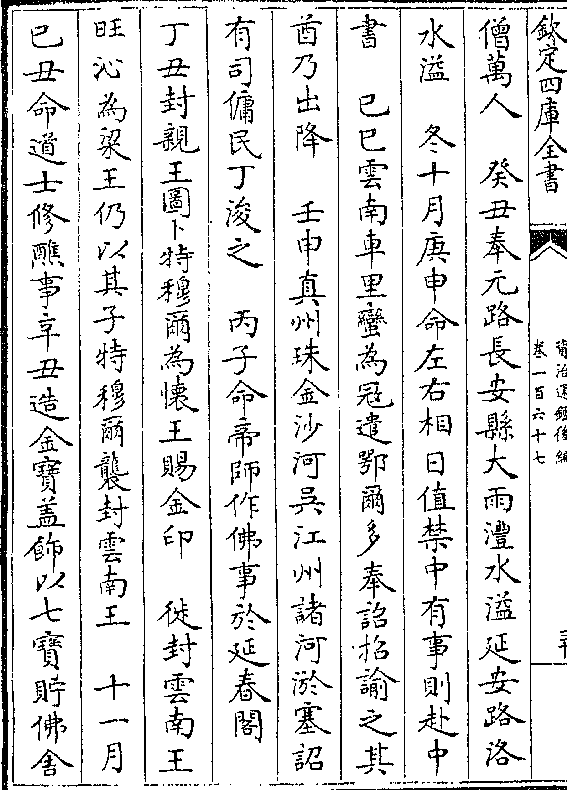 欽定四庫全書
資治通鑑後編
卷一百六十七
三十
僧萬人　癸丑奉元路長安縣大雨灃水溢延安路洛
水溢　冬十月庚申命左右相日值禁中有事則赴中
書　己巳雲南車里蠻為寇遣鄂爾多奉詔招諭之其
酋乃出降　壬申真州珠金沙河吳江州諸河淤塞詔
有司傭民丁浚之　丙子命帝師作佛事於延春閣
丁丑封親王圖卜特穆爾為懷王賜金印　徙封雲南王
旺沁為梁王仍以其子特穆爾襲封雲南王　十一月
己丑命道士修醮事辛丑造金寶蓋飾以七寶貯佛舍